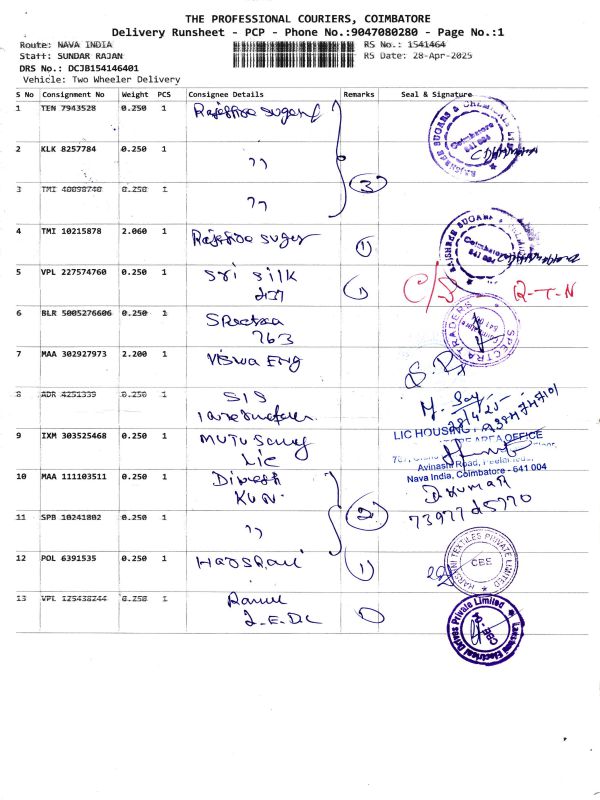 THE PROFESSIONAL COURIERS, COIMBATORE
Delivery Runsheet - PCP - Phone No.:9047080280 - Page No.:1
Route: NAVA INDIA
RS No.: 1541464
Staff: SUNDAR RAJAN
RS Date: 28-Apr-2025
DRS No.: DCJB154146401
Vehicle: Two Wheeler Delivery
S No Consignment No Weight PCS Consignee Details Remarks Seal & Signature
1 TEN 7943528 0.250 1 Rajshree Sugars
2 KLK 8257784 0.250 1 ״
3 TMI 40898748 0.250 1 ״ 3
4 TMI 10215878 2.060 1 Rajshree Sugar 1
5 VPL 227574760 0.250 1 Sri Silk 1
C/S R-T-N
6 BLR 5005276606 0.250 1 Spectraa
763
SPECTRA TRADERS
7 MAA 302927973 2.200 1 Viswa Eng
8 ADR 4251339 0.250 1 SIS
28/4/25
9 IXM 303525468 0.250 1 Mutu
LIC
LIC HOUSING
AREA OFFICE
Avinashi Road, Peelamedu,
Nava India, Coimbatore - 641 004
10 MAA 111103511 0.250 1 Dinesh
Kun.
D. Kumar
11 SPB 10241802 0.250 1 ״ 2
12 POL 6391535 0.250 1 1
HARSHNI TEXTILES PRIVATE LIMITED
CBE
13 VPL 125438244 0.250 1
L.E.DL
Lakshmi Electrical Drives Private Limited
CBE-04
RAJSHREE SUGARS & CHEMICALS LTD
Coimbatore
641 004